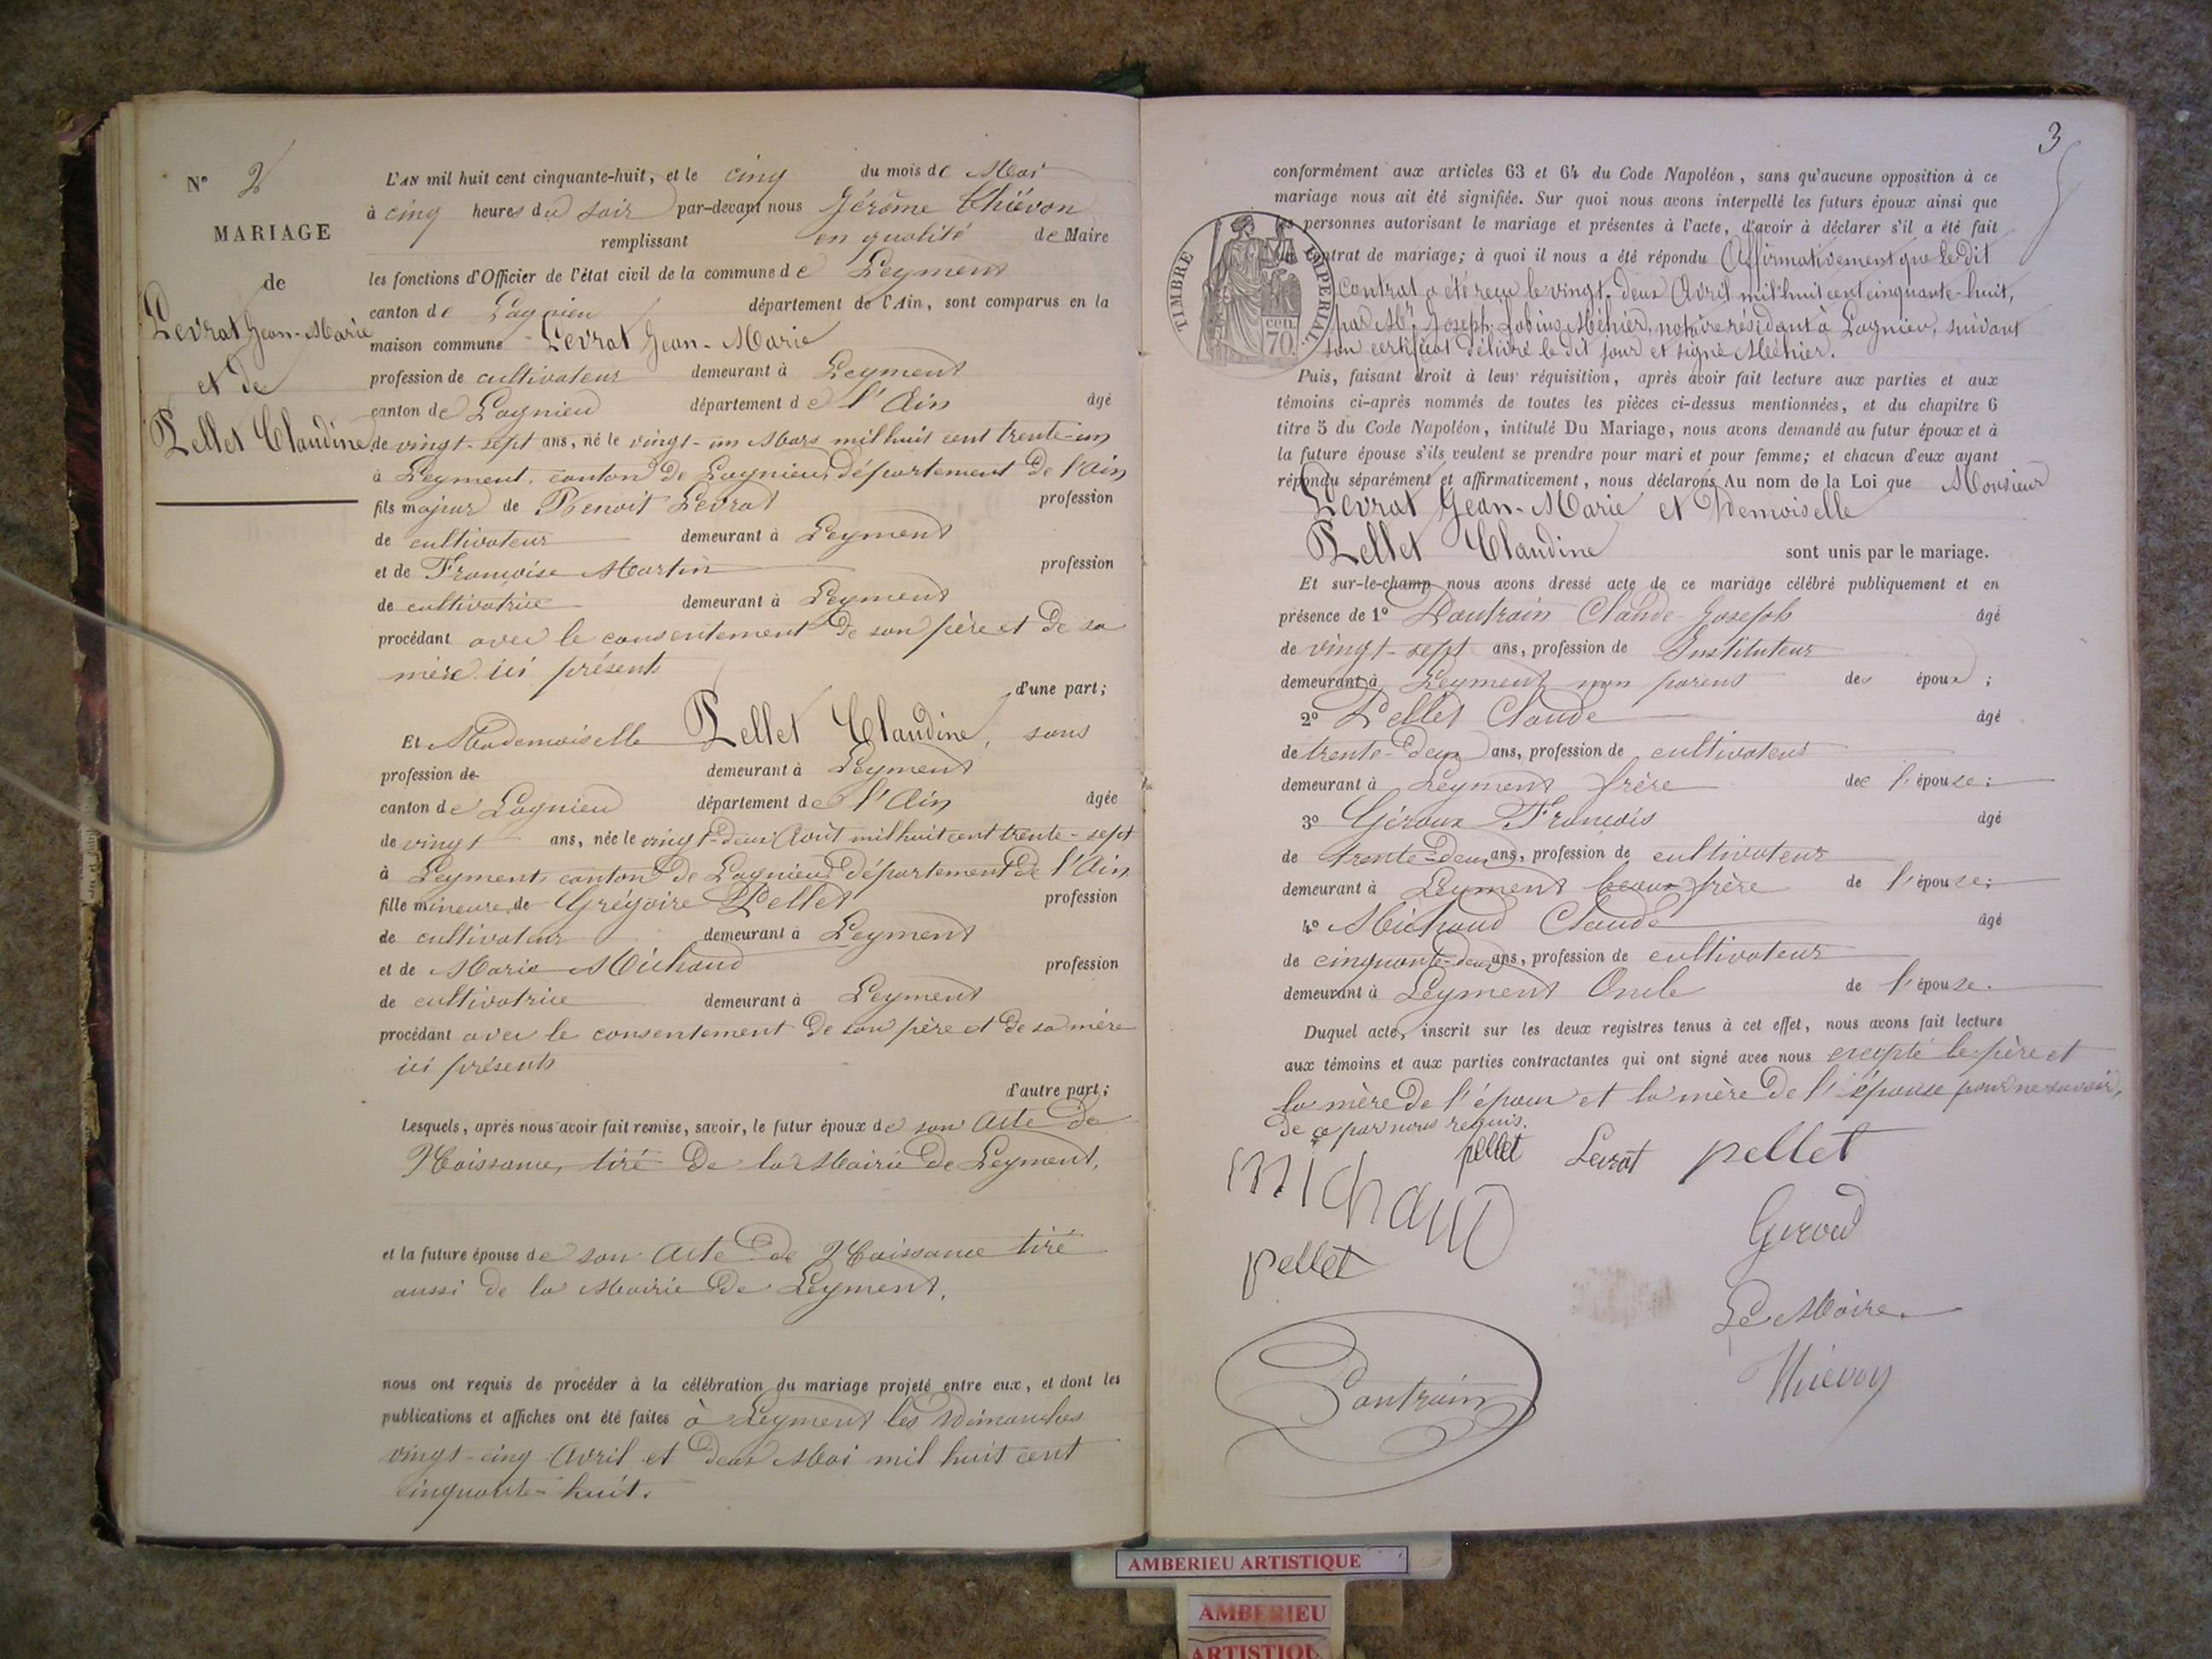 N° 2
MARIAGE
de
Levrat Jean-Marie
et de
Pellet Claudine
L'AN mil huit cent cinquante-huit, et le cinq du mois de Mai
à cinq heures du soir par-devant nous Jérôme Thiévon
remplissant en qualité de Maire
les fonctions d'Officier de l'état civil de la commune de Leyment
canton de Lagnieu département de l'Ain, sont comparus en la
maison commune Levrat Jean-Marie
profession de cultivateur demeurant à Leyment
canton de Lagnieu département de l'Ain âgé
de vingt-sept ans, né le vingt-un Mars mil huit cent trente-un
à Leyment, canton de Lagnieu, département de l'Ain
fils majeur de Benoit Levrat profession
de cultivateur demeurant à Leyment
et de Françoise Martin profession
de cultivatrice demeurant à Leyment
procédant avec le consentement de son père et de sa
mère ici présents
d'une part;
Et Mademoiselle Pellet Claudine, sans
profession de demeurant à Leyment
canton de Lagnieu département de l'Ain âgée
de vingt ans, née le vingt-deux Août mil huit cent trente-sept
à Leyment, canton de Lagnieu, département de l'Ain
fille mineure de Grégoire Pellet profession
de cultivateur demeurant à Leyment
et de Marie Michaud profession
de cultivatrice demeurant à Leyment
procédant avec le consentement de son père et de sa mère
ici présents
d'autre part;
Lesquels, après nous avoir fait remise, savoir, le futur époux de son Acte de
Naissance, tiré de la Mairie de Leyment,
et la future épouse de son Acte de Naissance tiré
aussi de la Mairie de Leyment,
nous ont requis de procéder à la célébration du mariage projeté entre eux, et dont les
publications et affiches ont été faites à Leyment les Dimanches
vingt-cinq Avril et deux Mai mil huit cent
cinquante-huit.
3
conformément aux articles 63 et 64 du Code Napoléon, sans qu'aucune opposition à ce
mariage nous ait été signifiée. Sur quoi nous avons interpellé les futurs époux ainsi que
les personnes autorisant le mariage et présentes à l'acte, d'avoir à déclarer s'il a été fait
contrat de mariage; à quoi il nous a été répondu Affirmativement que le dit
Contrat a été reçu le vingt-deux Avril mil huit cent cinquante-huit,
par Mr Joseph Méhier, notaire résidant à Lagnieu, suivant
son certificat délivré le dit jour et signé Méhier.
TIMBRE IMPERIAL
cen.
70.
Puis, faisant droit à leur réquisition, après avoir fait lecture aux parties et aux
témoins ci-après nommés de toutes les pièces ci-dessus mentionnées, et du chapitre 6
titre 5 du Code Napoléon, intitulé Du Mariage, nous avons demandé au futur époux et à
la future épouse s'ils veulent se prendre pour mari et pour femme; et chacun d'eux ayant
répondu séparément et affirmativement, nous déclarons Au nom de la Loi que Monsieur
Levrat Jean-Marie et Demoiselle
Pellet Claudine sont unis par le mariage.
Et sur-le-champ nous avons dressé acte de ce mariage célébré publiquement et en
présence de 1° Dautrain Claude-Joseph âgé
de vingt-sept ans, profession de Instituteur
demeurant à Leyment non parent des époux;
2° Pellet Claude âgé
de trente-deux ans, profession de cultivateur
demeurant à Leyment frère de l'épouse;
3° Giroux François âgé
de trente-deux ans, profession de cultivateur
demeurant à Leyment beau-frère de l'épouse;
4° Michaud Claude âgé
de cinquante-deux ans, profession de cultivateur
demeurant à Leyment Oncle de l'épouse.
Duquel acte, inscrit sur les deux registres tenus à cet effet, nous avons fait lecture
aux témoins et aux parties contractantes qui ont signé avec nous excepté le père et
la mère de l'époux et la mère de l'épouse pour ne savoir,
de ce par nous requis.
pellet Levrat pellet
michaud
Giroud
pellet
Le Maire.
Dautrain
Thiévon
AMBERIEU ARTISTIQUE
AMBERIEU
ARTISTIQU